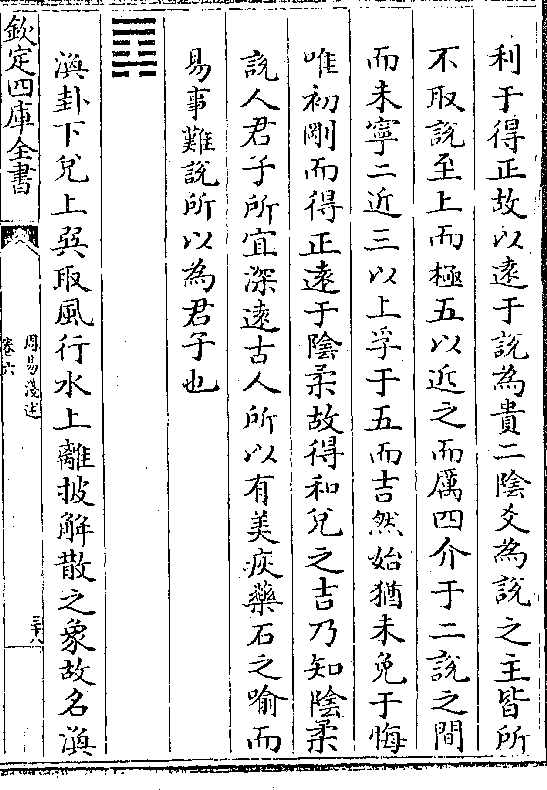 利于得正故以逺于說為貴二陰爻為說之主皆所
不取說至上而極五以近之而厲四介于二說之間
而未寧二近三以上孚于五而吉然始猶未免于悔
唯初剛而得正逺于陰柔故得和兌之吉乃知陰柔
說人君子所宜深逺古人所以有美疢藥石之喻而
易事難說所以為君子也
䷺
渙卦下兌上巽取風行水上離披解散之象故名渙
欽定四庫全書
周易淺述
卷六
三十八